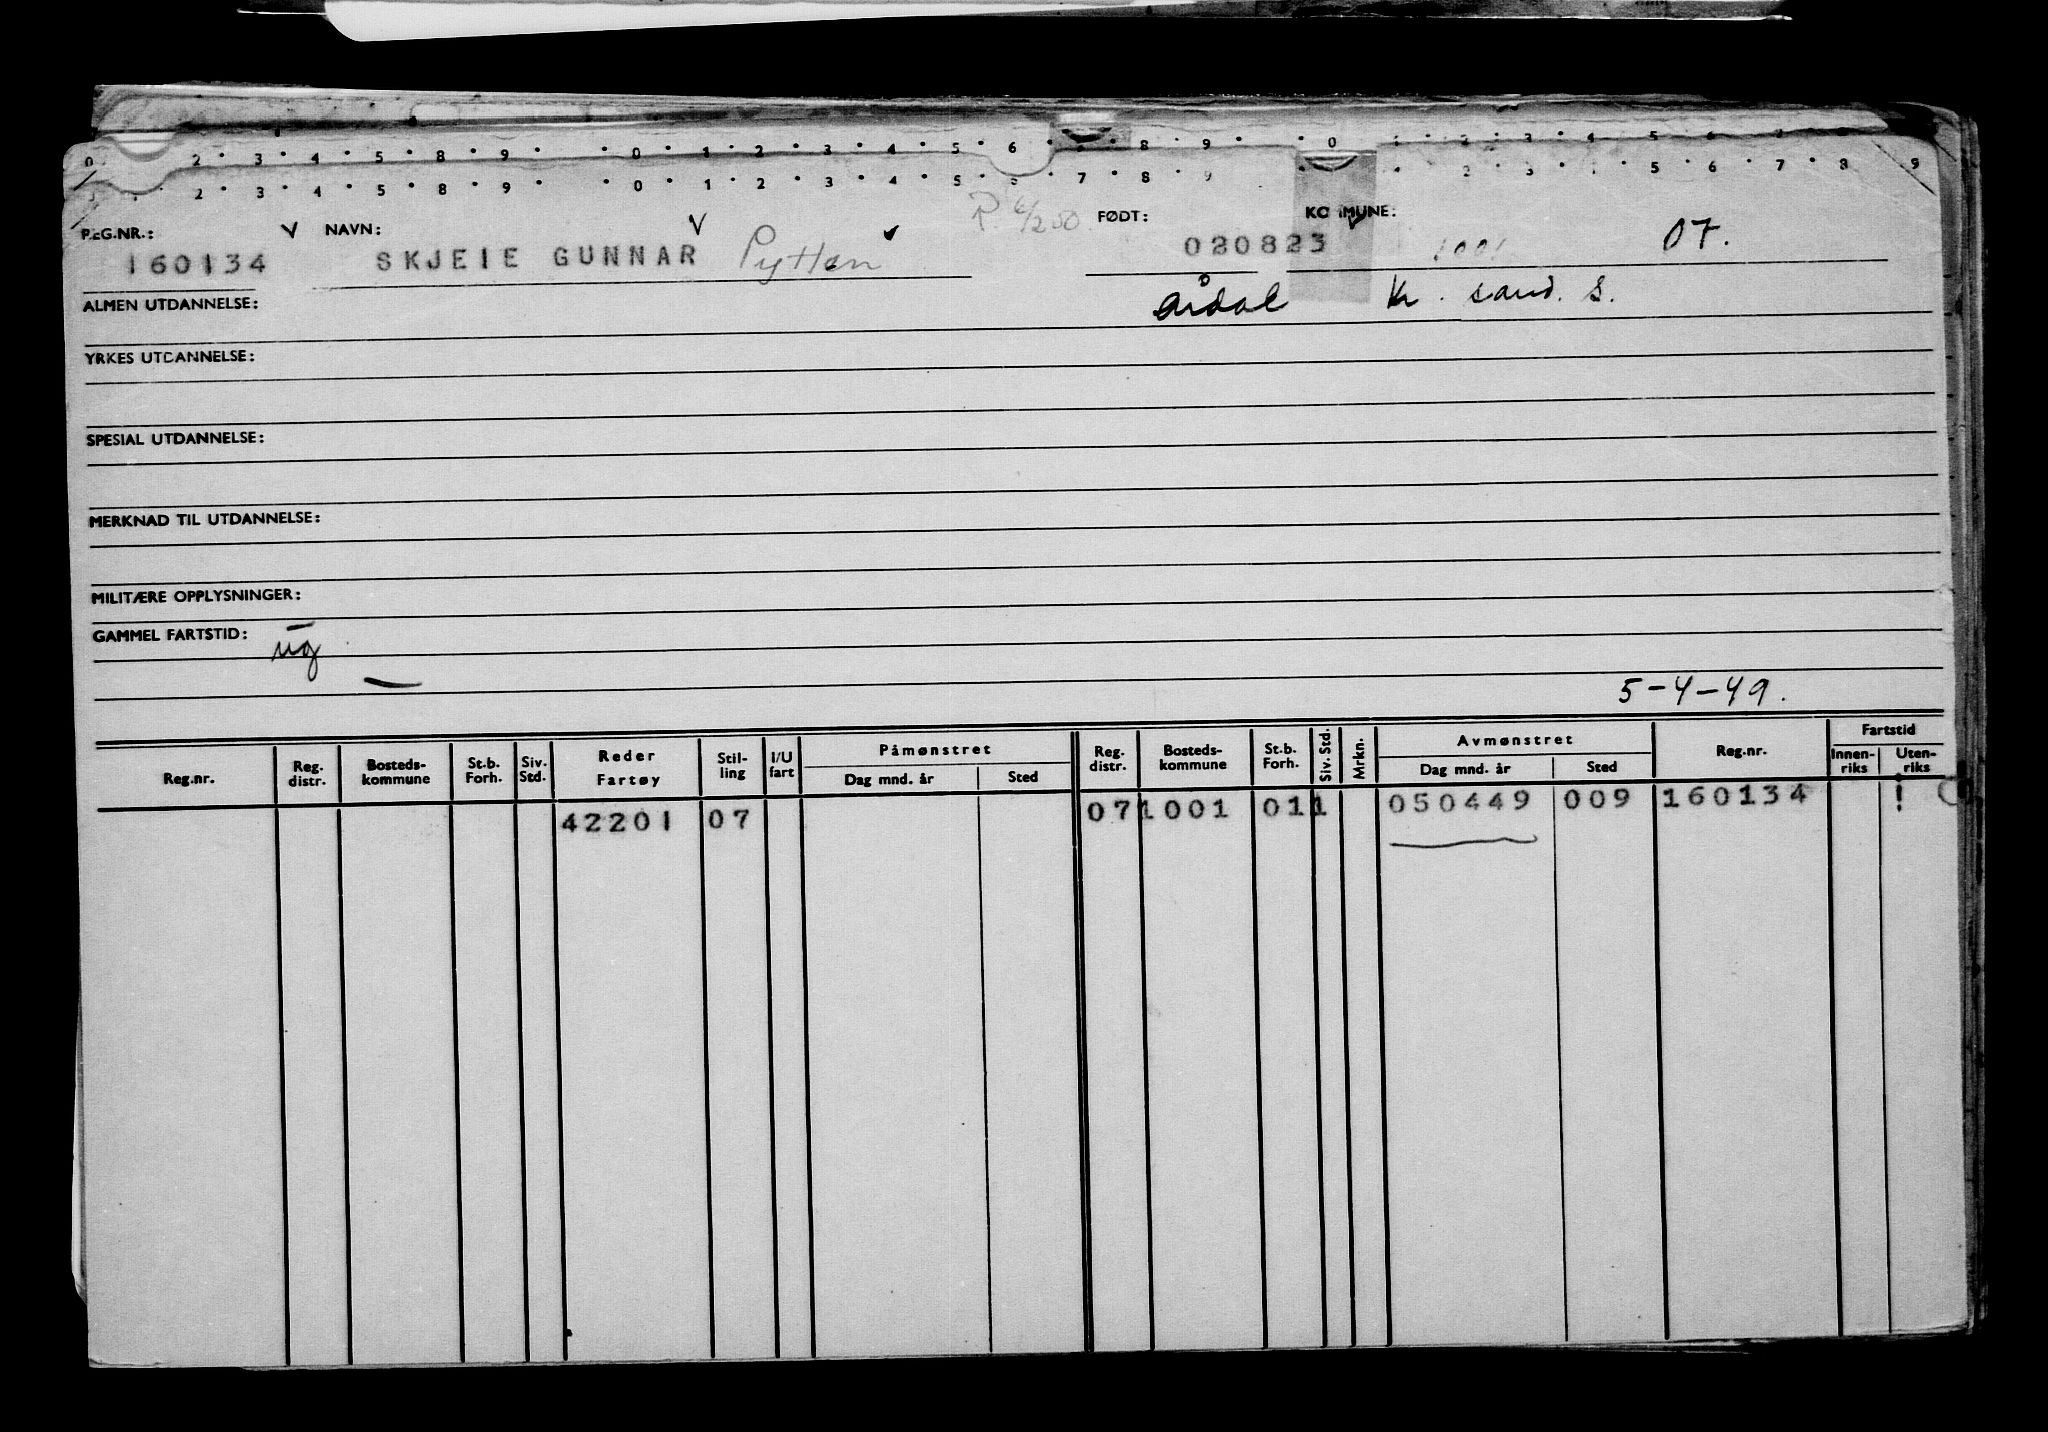 0 2 · 3 · 4 · 5 · 8 · 9 · · 0 · 1 · 2 · 3 · 4 · 5 · 6 · 8 · 9 · · 0 2 · 3 · 4 5 6 7
2 · 3 · 4 · 5 · 8 · 9 · · 0 · 1 · 2 · 3 · 4 · 5 · 7 · 8 · 9 2 · 3 · 5 · 6 · 7 · 8 · 9
REG.NR.: NAVN: FØDT: KOMMUNE:
160134 SKJEIE GUNNAR Pytten 020823 1001 07.
ALMEN UTDANNELSE: Årdal Kr. sand. S.
YRKES UTDANNELSE:
SPESIAL UTDANNELSE:
MERKNAD TIL UTDANNELSE:
MILITÆRE OPPLYSNINGER:
GAMMEL FARTSTID: ug
5-4-49.
Reg.nr. Reg. distr. Bosteds-kommune St.b. Forh. Siv. Std. Reder Fartøy Stil-ling I/U fart Påmønstret Dag mnd. år Sted Reg. distr. Bosteds-kommune St.b. Forh. Siv. Std. Mrkn. Avmønstret Dag mnd. år Sted Reg.nr. Fartstid Innen-riks Uten-riks
42201 07 071001 011 050449 009 160134 !